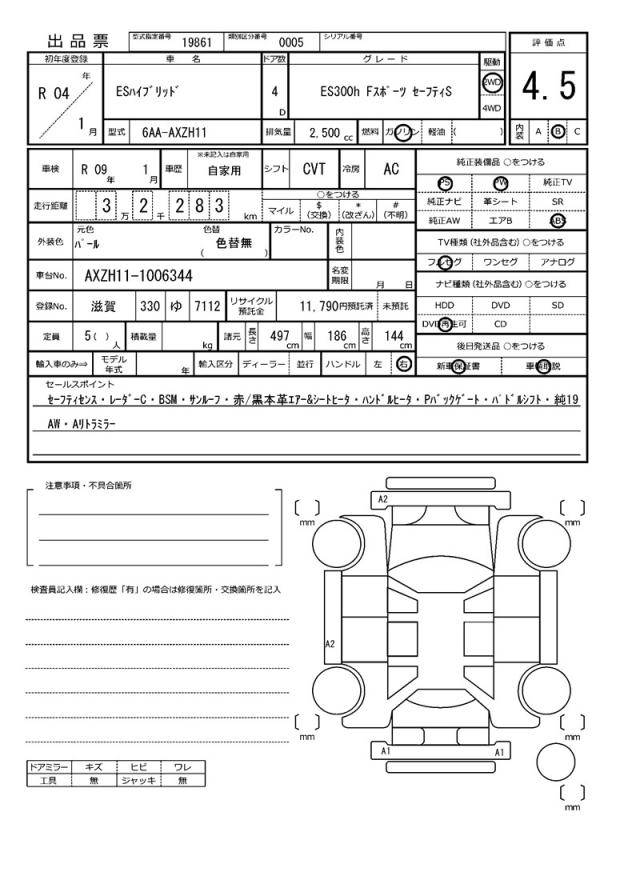 出品票 型式指定番号 19861 類別区分番号 0005 シリアル番号
初年度登録 車名 ドア数 グレード 駆動 評価点
R 04 年 1 月 ESハイブリッド 4 D ES300h Fスポーツ セーフティS 2WD 4WD 4.5
型式 6AA-AXZH11 排気量 2,500 cc 燃料 ガソリン 軽油 ( ) 内装 A B C
車検 R 09 年 1 月 車歴 ※未記入は自家用 自家用 シフト CVT 冷房 AC 純正装備品 ○をつける
PS PW 純正TV
走行距離 3 万 2 千 2 8 3 km ○をつける マイル $ (交換) * (改ざん) # (不明) 純正ナビ 革シート SR
純正AW エアB ABS
外装色 元色 パール 色替 色替無 ( ) カラーNo. 内装色 TV種類 (社外品含む) ○をつける
フルセグ ワンセグ アナログ
車台No. AXZH11-1006344 名変期限 月 日 ナビ種類 (社外品含む) ○をつける
登録No. 滋賀 330 ゆ 7112 リサイクル預託金 11,790円預託済 未預託 HDD DVD SD
DVD再生可 CD
定員 5( ) 人 積載量 kg 諸元 長さ 497 cm 幅 186 cm 高さ 144 cm 後日発送品 ○をつける
輸入車のみ⇒ モデル年式 年 輸入区分 ディーラー 並行 ハンドル 左 右 新車保証書 車輌取説
セールスポイント
セーフティセンス・レーダーC・BSM・サンルーフ・赤/黒本革エアー&シートヒータ・ハンドルヒータ・Pバックゲート・パドルシフト・純19
AW・Aリトラミラー
注意事項・不具合箇所
検査員記入欄：修復歴「有」の場合は修復箇所・交換箇所を記入
A2
mm mm
A2
mm mm
A1 A1
mm
ドアミラー キズ ヒビ ワレ
工具 無 ジャッキ 無